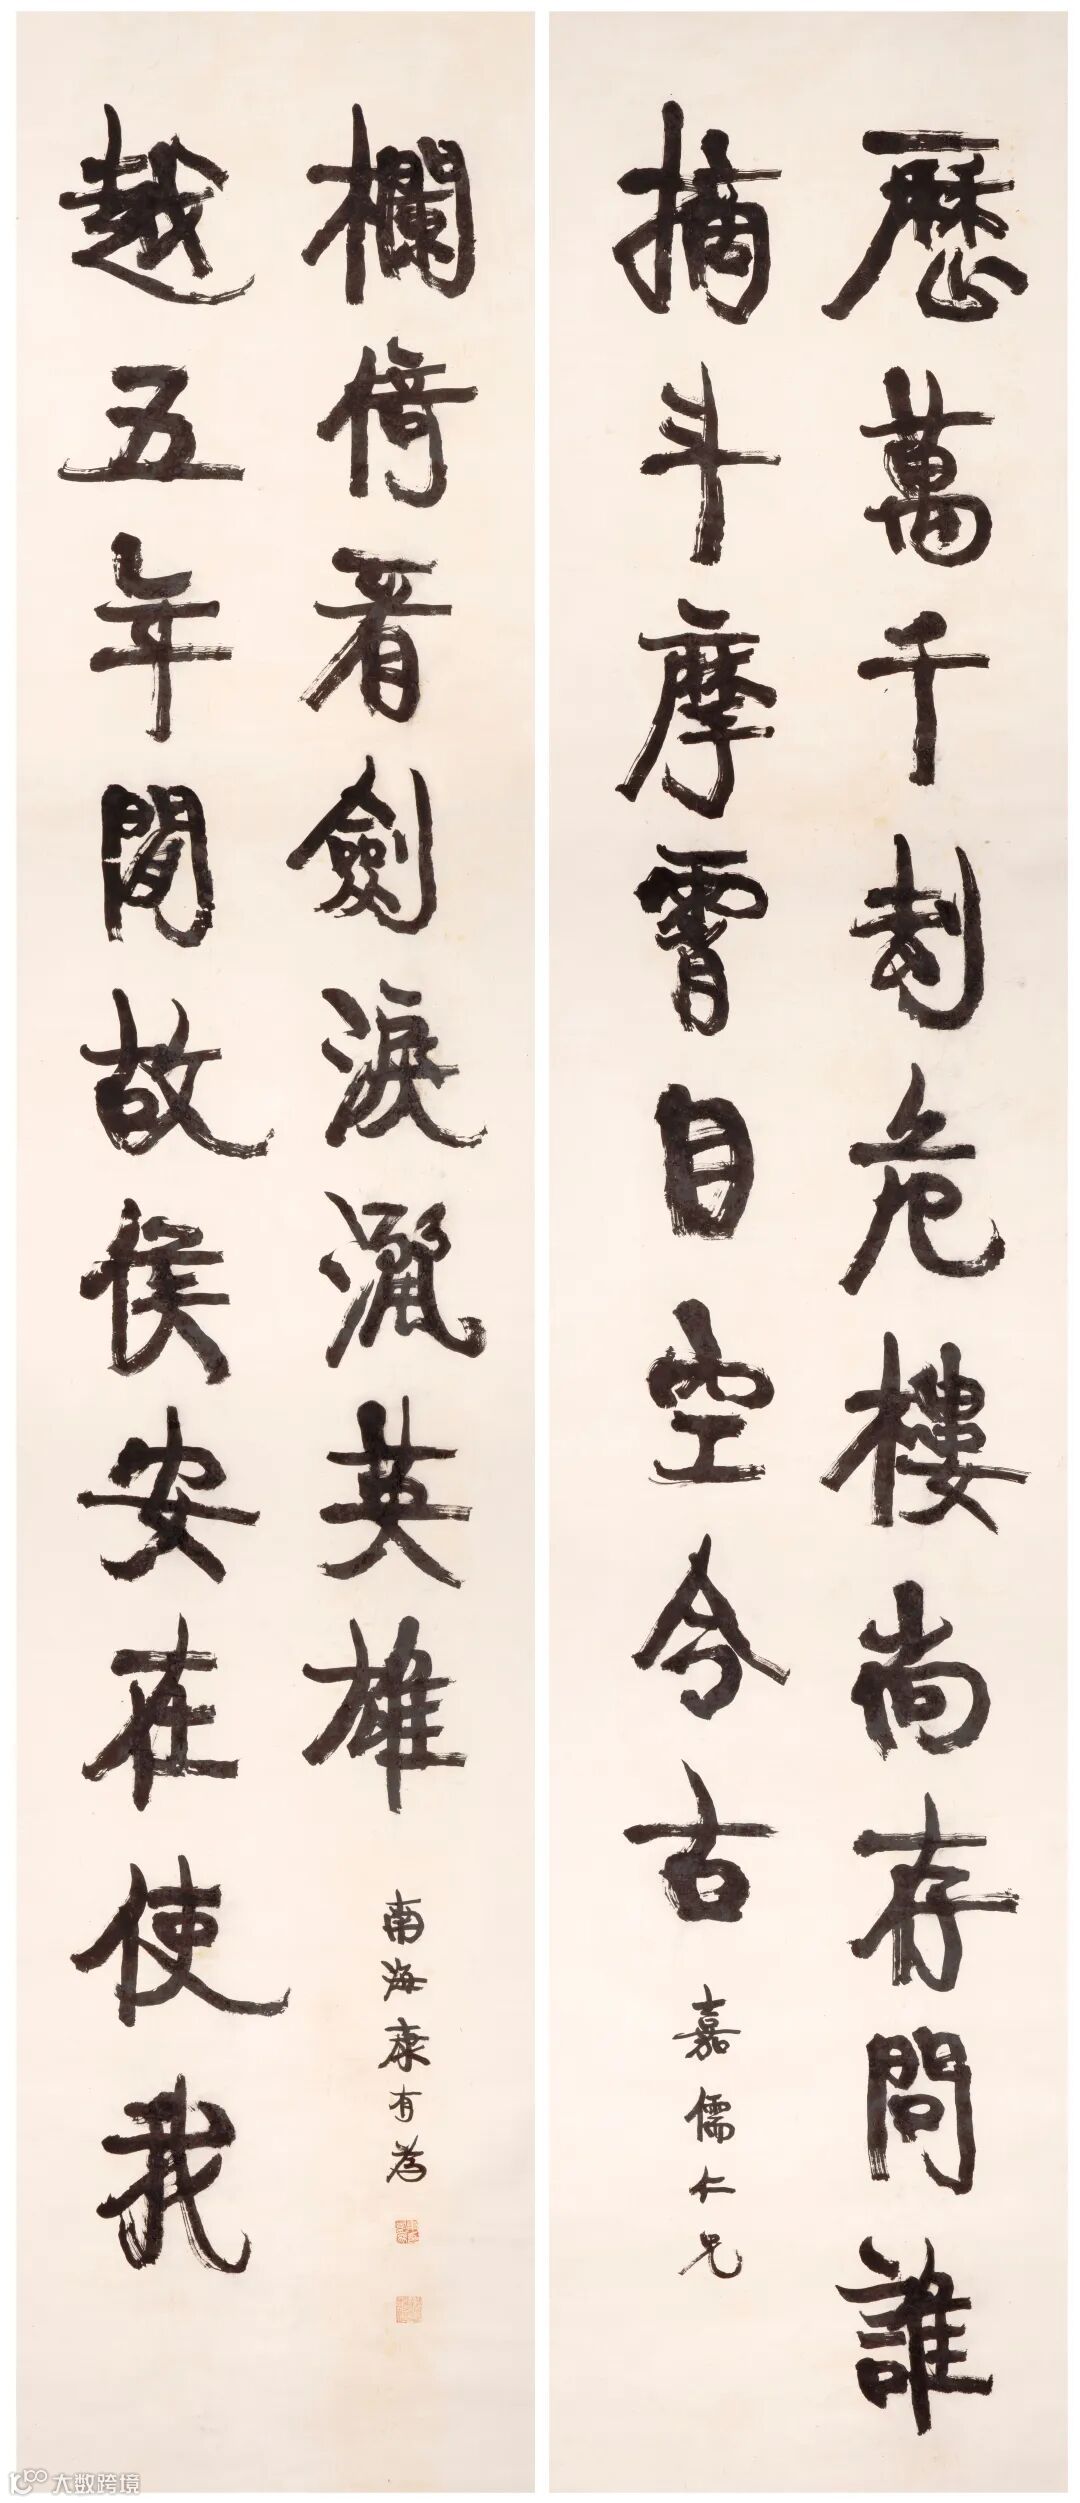 歷萬千劫危樓尚存問誰
摘斗摩霄目空今古
嘉儒仁兄
越五年閒故侯安在使我
欄倚看劍淚灑英雄
南海康有為
大数跨境